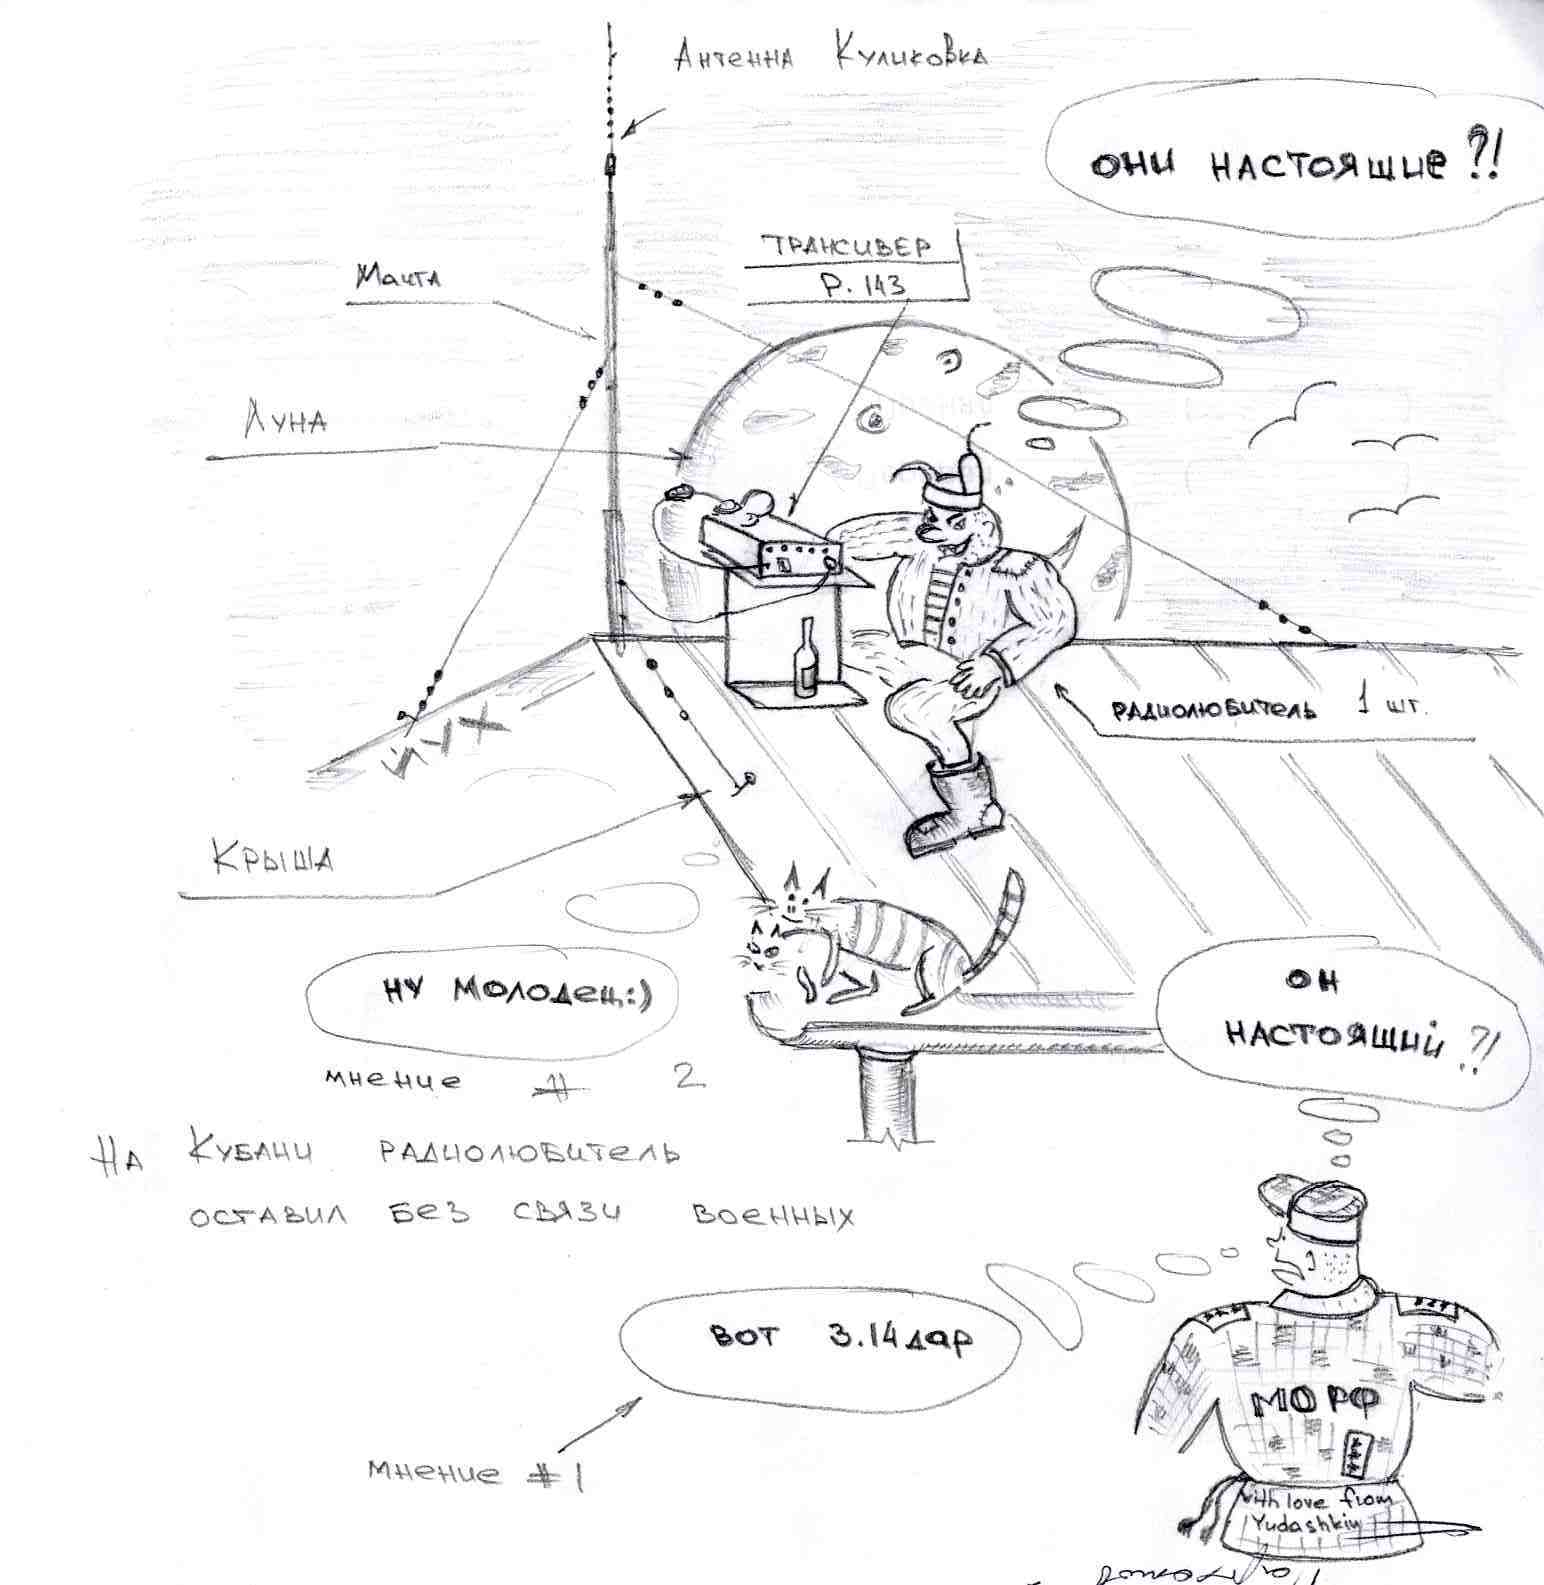 Антенна Куликовка
ОНИ НАСТОЯЩИЕ ?!
ТРАНСИВЕР
Р. 143
Мачта
Луна
РАДИОЛЮБИТЕЛЬ 1 шт.
Крыша
НУ МОЛОДЕЦ:)
мнение # 2
ОН
НАСТОЯЩИЙ ?!
На Кубани радиолюбитель
оставил без связи военных
ВОТ 3.14дар
мнение #1
МО РФ
with love from
Yudashkin